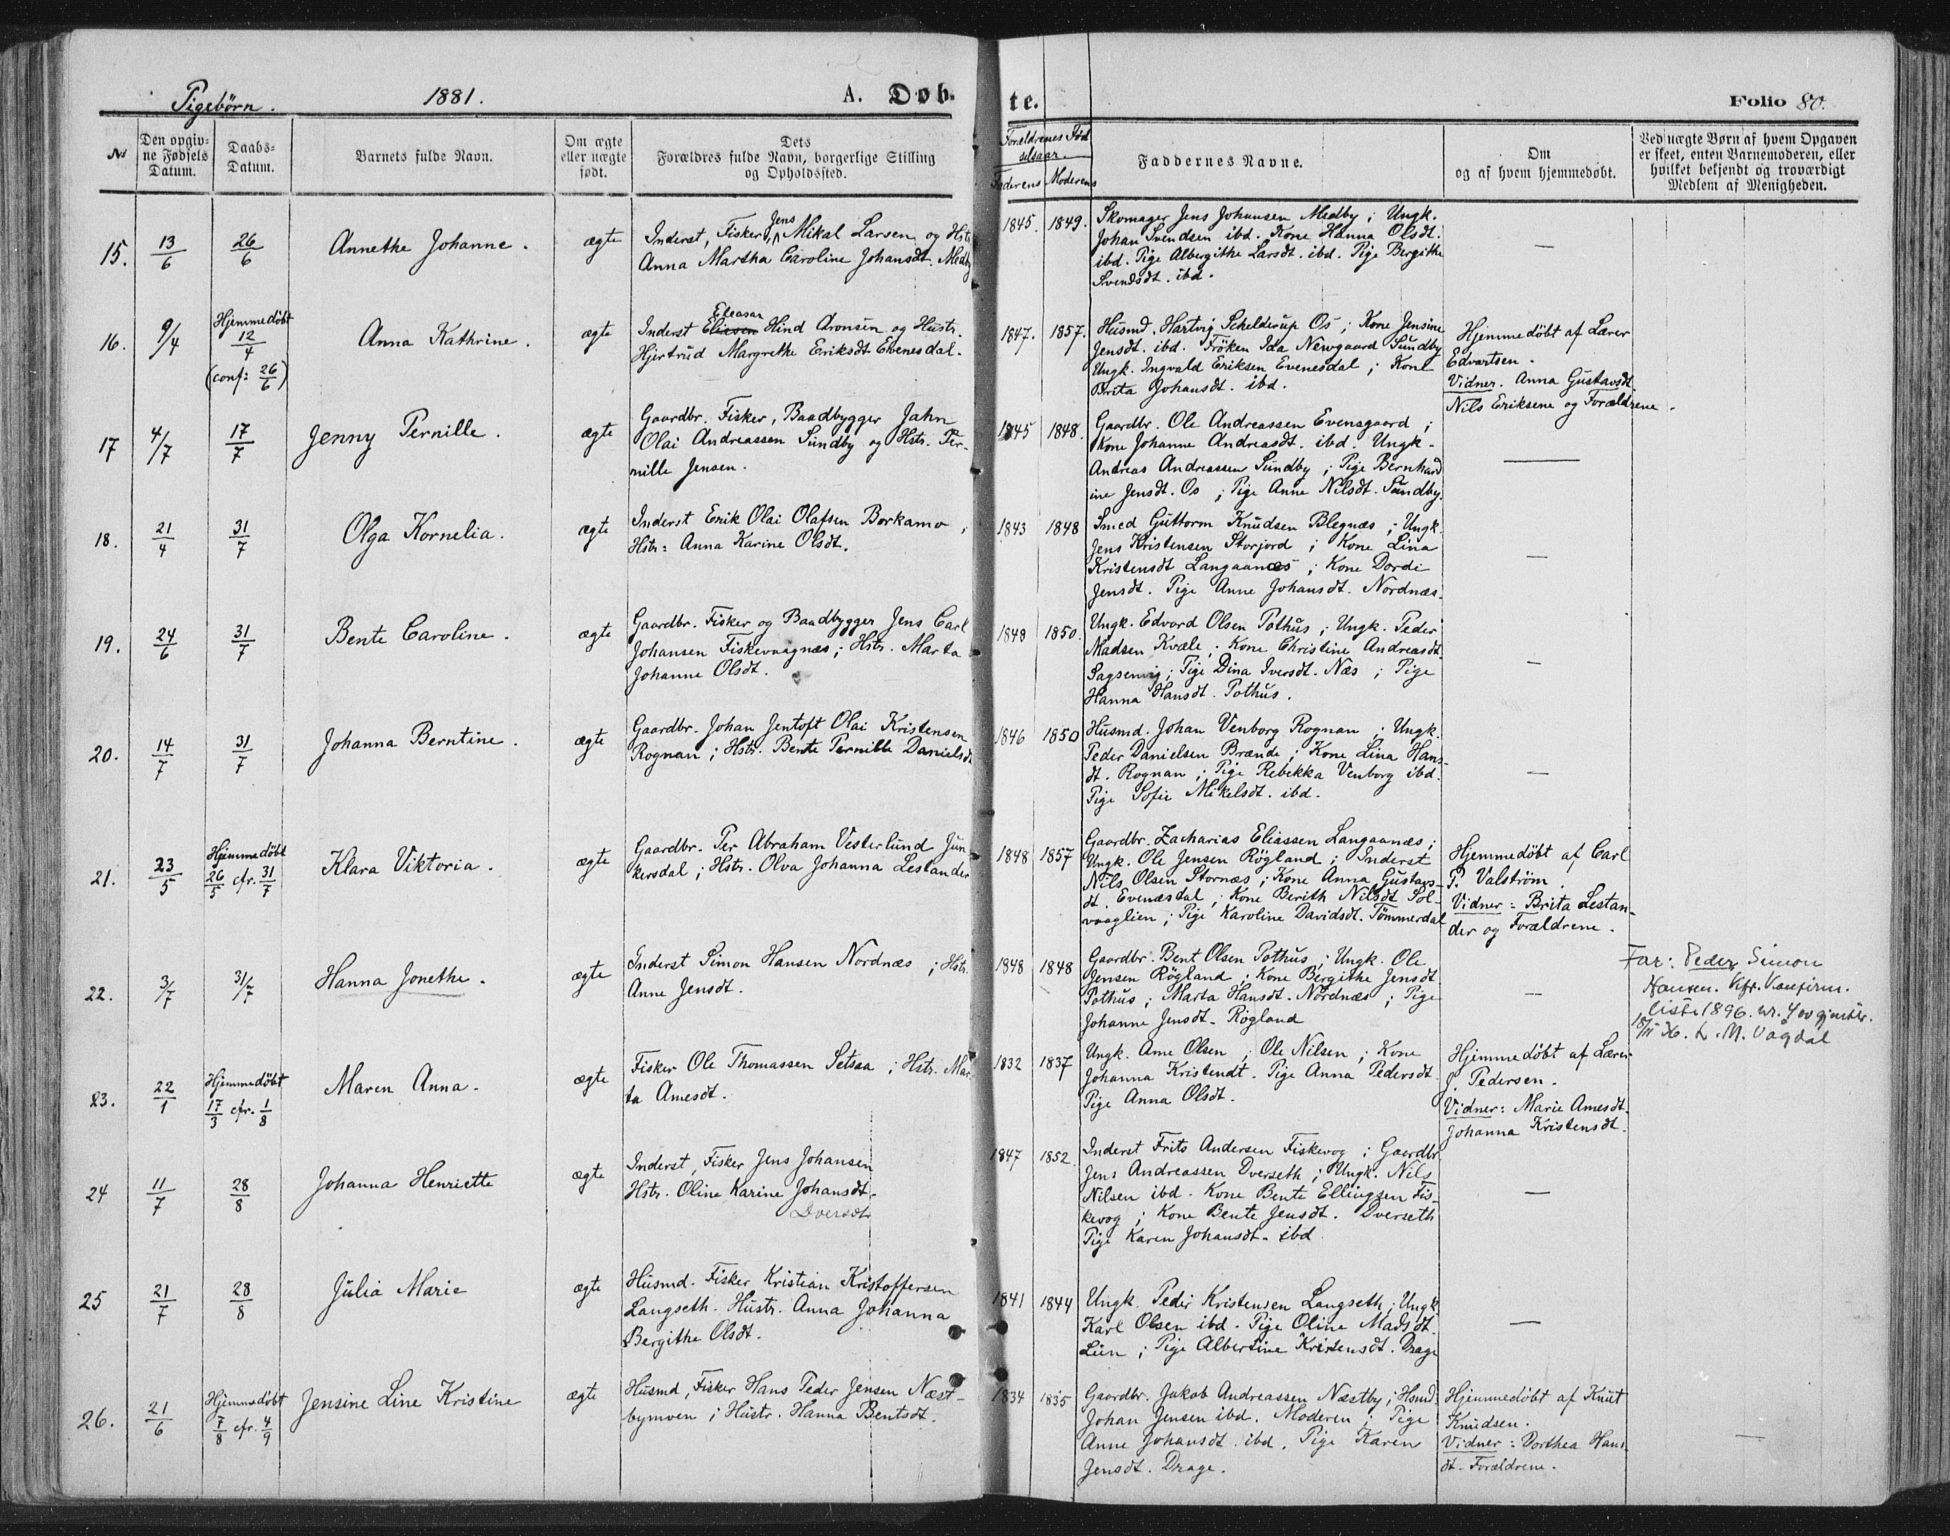 Pigebørn. 1881. A. Døbte. Folio 80.
No
Den opgivne Fødsels Datum.
Daabs-Datum.
Barnets fulde Navn.
Om ægte eller uægte født.
Dets Forældres fulde Navn, borgerlige Stilling og Opholdssted.
Forældrenes Fødselsaar.
Faderens Moderens
Faddernes Navne.
Om og af hvem hjemmedøbt.
Ved uægte Børn af hvem Opgaven er skeet, enten Barnemoderen, eller hvilket bekjendt og troværdigt Medlem af Menigheden.
15. 13/6 26/6 Annethe Johanne. ægte
Inderst, Fisker Jens Mikal Larsen og Hstr
Anna Martha Caroline Johansdt. Medby
1845. 1849.
Skomager Jens Johansen Medby; Ungk.
Johan Svendsen ibd. Kone Hanna Olsdt.
ibd. Pige Albergithe Larsdt. ibd. Pige Bergithe
Svendsdt. ibd.
—
16. 9/4 Hjemmedøbt 12/4 (conf: 26/6) Anna Kathrine. ægte
Eleasar
Inderst Eliesen Hind Aronsen og Hustr.
Hjertrud Margrethe Eriksdt Evenesdal.
1847. 1857.
Husmd. Hartvig Schelderup Os; Kone Jensine
Jensdt. ibd. Frøken Ida Newgaard Sundby
Ungk. Ingvald Eriksen Evenesdal; Kone
Brita Johansdt. ibd.
Hjemmedøbt af Lærer
Edvartsen.
Vidner. Anna Gustavsdt.
Nils Eriksene og Forældrene.
17 4/7 17/7 Jenny Pernille. ægte
Gaardbr. Fisker, Baadbygger Jahn
Olai Andreassen Sundby og Hstr. Per-
nille Jensen.
1845 1848.
Gaardbr. Ole Andreassen Evensgaard;
Kone Johanne Andreasdt. ibd. Ungk.
Andreas Andreassen Sundby; Pige Bernhard
ine Jensdt. Os; Pige Anne Nilsdt. Sundby.
—
18. 21/4 31/7 Olga Kornelia. ægte
Inderst Erik Olai Olafsen Borkamo;
Hstr: Anna Karine Olsdt.
1843 1848
Smed Guttorm Knudsen Blegnæs; Ungk.
Jens Kristensen Storjord; Kone Lina
Kristensdt Langaanæs; Kone Dordi
Jensdt. Pige Anne Johansdt. Nordnæs.
—
19. 24/6 31/7 Bente Caroline. ægte
Gaardbr. Fisker og Baadbygger Jens Carl
Johansen Fiskevaagnæs; Hstr. Marta
Johanne Olsdt.
1848 1850.
Ungk. Edvard Olsen Pothus; Ungk. Peder
Madsen Kvæle; Kone Christine Andreasdt.
Sagsenvig; Pige Dina Iversdt. Næs; Pige
Hanna Hansdt. Pothus.
—
20. 14/7 31/7 Johanna Berntine. ægte
Gaardbr. Johan Jentoft Olai Kristensen
Rognan; Hstr. Bente Pernille Danielsdt
1846 1850
Husmd. Johan Venborg Rognan; Ungk.
Peder Danielsen Brænde; Kone Lina Hans-
dt. Rognan; Pige Rebekka Venborg ibd.
Pige Sofie Mikelsdt. ibd.
—
21. 23/5 Hjemmedøbt 26/5 cfr. 31/7 Klara Viktoria. ægte
Gaardbr. Per Abraham Vesterlund Jun
kersdal; Hstr. Olva Johanna Lestander
1848 1857
Gaardbr. Zacharias Eliassen Langaanæs;
Ungk. Ole Jensen Røgland; Inderst
Nils Olsen Stornæs; Kone Anna Gustavs-
dt. Evenæsdal; Kone Berith Nilsdt Sol-
vaaglien; Pige Karoline Davidsdt. Tømmerdal
Hjemmedøbt af Carl
P. Valstrøm.
Vidner: Brita Lestan-
der og Forældrene.
22. 3/7 31/7 Hanna Jonethe. ægte
Inderst Simon Hansen Nordnæs; Hstr.
Anne Jensdt.
1848 1848
Gaardbr. Bent Olsen Pothus; Ungk. Ole
Jensen Røgland; Kone Bergithe Jensdt
Pothus; Marta Hansdt. Nordnæs; Pige
Johanne Jensdt. Røgland
—
Far: Peder Simon
Hansen. Kfr. Konfirm.
liste 1896. nr. 4 ov. gjenter.
L. M. Vågdal
23. 22/1 Hjemmedøbt 17/3 cfr. 1/8 Maren Anna. ægte
Fisker Ole Thomassen Setsaa; Hstr. Mar
ta Arnesdt.
1832 1837
Ungk. Arne Olsen; Ole Nilsen; Kone
Johanna Kristendt. Pige Anna Pedersdt
Pige Anna Olsdt.
Hjemmedøbt af Lærer
J. Pedersen.
Vidner: Marie Arnesdt.
Johanna Kristensdt.
24 11/7 28/8 Johanna Henriette ægte
Inderst, Fisker Jens Johansen
Hstr. Oline Karine Johansdt.
1847 1852.
Inderst Frits Andersen Fiskevog; Gaardbr.
Jens Andreassen Dverseth; Ungk. Nils
Nilsen ibd. Kone Bente Ellingsen Fis-
kevog; Kone Bente Jensdt. Dverseth
Pige Karen Johansdt. ibd
—
25 21/7 28/8 Julia Marie ægte
Husmd. Fisker Kristian Kristoffersen
Langseth. Hustr. Anna Johanna
Bergithe Olsdt.
1841 1844
Ungk. Peder Kristensen Langseth; Ungk.
Karl Olsen ibd. Pige Oline Madsdt.
Lien; Pige Albertine Kristensdt. Drage
—
26. 21/6 Hjemmedøbt 7/8 cfr. 4/9 Jensine Line Kristine ægte
Husmd, Fisker Hans Peder Jensen Næst-
bymoen; Hustr. Hanna Bentsdt.
1834 1835
Gaardbr. Jakob Andreassen Næstby; Husmd.
Johan Jensen ibd. Moderen; Pige
Anne Johansdt. ibd. Pige Karen
Jensdt. Drage.
Hjemmedøbt af Knut
Knudsen.
Vidner: Dorthea Hans
dt. Forældrene.
—